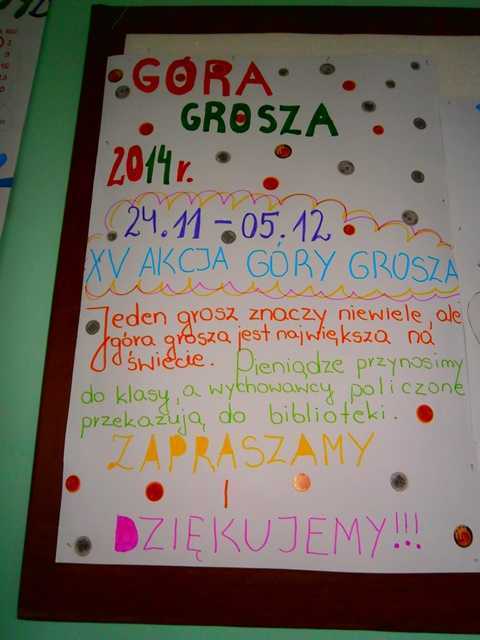 GÓRA
GROSZA
2014 r.
24.11 - 05.12
XV AKCJA GÓRY GROSZA
Jeden grosz znaczy niewiele, ale
góra grosza jest największa na
świecie. Pieniądze przynosimy
do klasy, a wychowawcy policzone
przekazują do biblioteki.
ZAPRASZAMY
I
DZIĘKUJEMY!!!